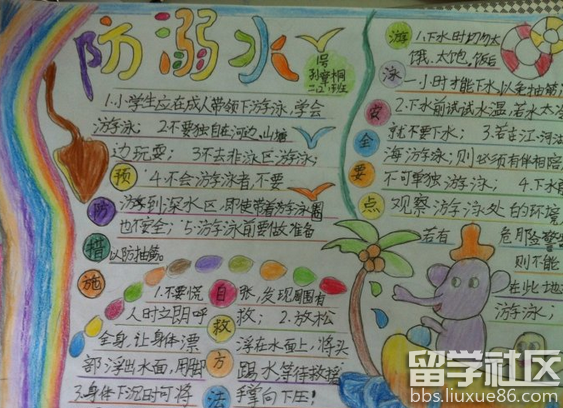 防溺水
1.小学生应在成人带领下游泳,学会
游泳; 2.不要独自在河边、山塘
边玩耍; 3.不去非泳区游泳;
4.不会游泳者,不要
游到深水区,即使带着游泳圈
也不安全; 5.游泳前要做准备
以防抽筋。
预防措施
1.不要慌张,发现周围有
人时立即呼救; 2.放松
全身,让身体漂浮在水面上,将头
部浮出水面,用脚踢水等待救援
3.身体下沉时可将手掌向下压!
自救方法
游泳安全要点
1.下水时切勿太
饿、太饱。饭后
一小时才能下水,以免抽筋
2.下水前试试水温,若水太冷
就不要下水; 3.若在江、河、湖
海游泳,则必须有伴相陪
不可单独游泳; 4.下水前
观察游泳处的环境
若有危险警
则不能
在此地
游泳;
留学社区
bbs.liuxue86.com